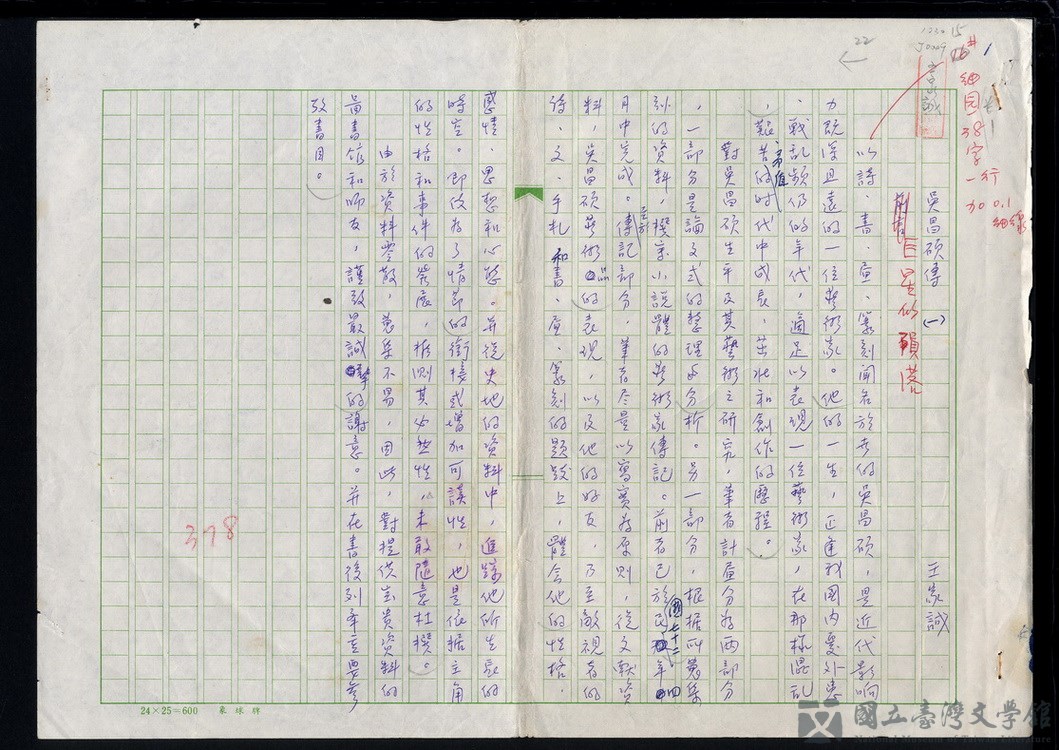 吳昌碩傳 (一)
巨星的殞落
王家誠
以詩、書、畫、篆刻聞名於世的吳昌碩，是近代影响
力既深且遠的一位藝術家。他的一生，正逢我國內憂外患
、戰乱頻仍的年代，適足以表現一位藝術家，在那樣混乱
，艱苦的時代中成長，茁壯和創作的歷程。
對吳昌碩生平及其藝術之研究，筆者計畫分為兩部分
，一部分是論文式的整理与分析。另一部分，根据所蒐集
刻的資料，撰宗小說體的藝術家傳記。前者已於民國七十二年四
月中完成。至於傳記部分，筆者尽量以寫實為原則，從文献資
料，吳昌碩藝術品的表現，以及他的好友，乃至敵視者的
詩、文、手札和書、畫、篆刻的題跋上，體会他的性格、
感情、思想和心愁。并從史地的資料中，追踪他所生長的
時空。即使為了情節的銜接或增加可讀性，也是依据主角
的性格和事件的發展，推測其必然性，未敢隨意杜撰。
由於資料零散，蒐集不易，因此，對提供宝貴資料的
圖書館和師友，謹致最誠摯的謝意。并在書後列舉主要參
攷書目。
378
24×25=600 象球牌
22
1230 15
16# 细园
38字一行
加0.1
细線
國立臺灣文學館